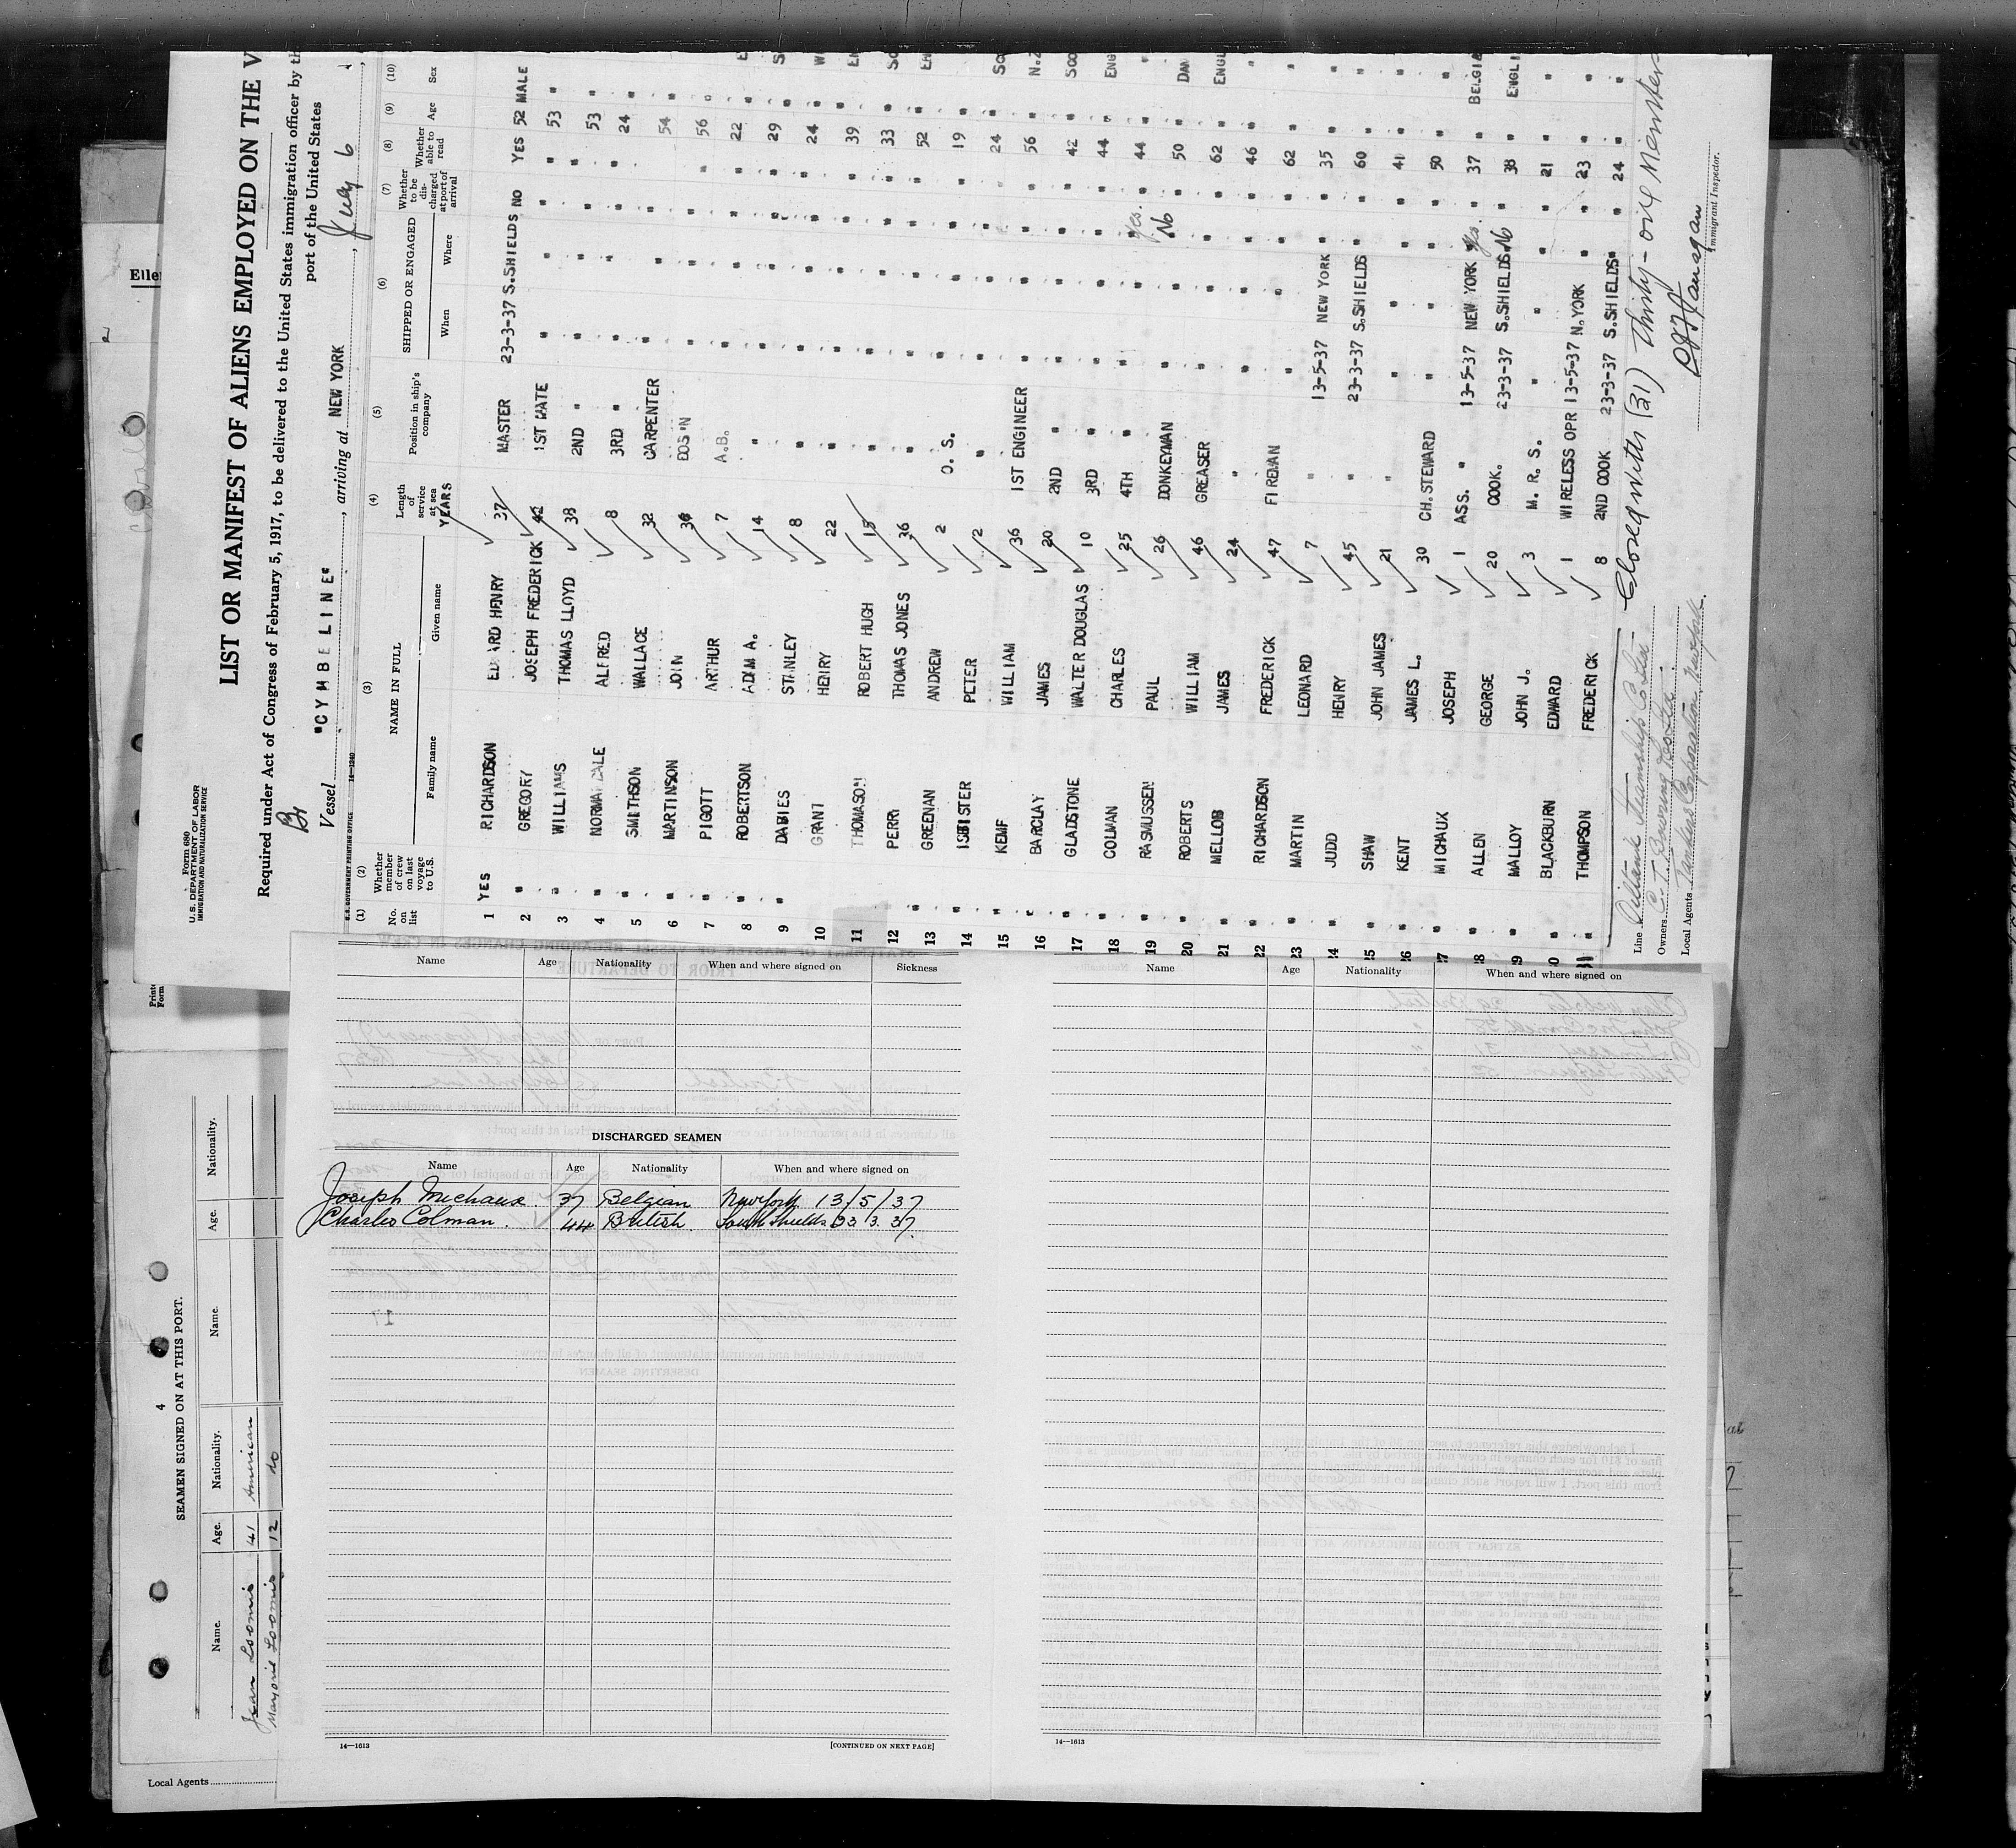 Form 680
U.S. DEPARTMENT OF LABOR
IMMIGRATION AND NATURALIZATION SERVICE
LIST OR MANIFEST OF ALIENS EMPLOYED ON THE V
Required under Act of Congress of February 5, 1917, to be delivered to the United States immigration officer by th
port of the United States
Br
Vessel "CYMBELINE", arriving at NEW YORK, July 6
U.S. GOVERNMENT PRINTING OFFICE
(1) (2) (3) (4) (5) (6) (7) (8) (9) (10)
No. on list Whether member of crew on last voyage to U.S. NAME IN FULL Family name Given name Length of service at sea YEARS Position in ship's company SHIPPED OR ENGAGED When Where Whether to be discharged at port of arrival Whether able to read Age Sex
1 YES RICHARDSON EDWARD HENRY 37 MASTER 23-3-37 S.SHIELDS NO YES 52 MALE
2 " GREGORY JOSEPH FREDERICK 42 1ST MATE " " " " 53 "
3 " WILLIAMS THOMAS LLOYD 38 2ND " " " " " 53 "
4 " NORMANDALE ALFRED 8 3RD " " " " " 24 "
5 " SMITHSON WALLACE 32 CARPENTER " " 54 "
6 " MARTINSON JOHN 36 BOS'N " " " 56 "
7 " PIGOTT ARTHUR 7 A.B. " " " 22 "
8 " ROBERTSON ADAM A. 14 " " " " 29 "
9 " DAVIES STANLEY 8 " " " " 24 "
10 GRANT HENRY 22 " " " " 39 "
11 THOMASON ROBERT HUGH 15 " " " " 33 "
12 " PERRY THOMAS JONES 36 " " " " 52 "
13 " GREENAN ANDREW 2 O. S. " " " 19 "
14 " ISBISTER PETER 2 " " " " 24 "
15 " KEMP WILLIAM 36 1ST ENGINEER " " " 56 "
16 " BARCLAY JAMES 20 2ND " " " " 42 "
17 " GLADSTONE WALTER DOUGLAS 10 3RD " " " " 44 " ENG
18 " COLMAN CHARLES 25 4TH " " " Yes. 44 " "
19 " RASMUSSEN PAUL 26 DONKEYMAN " " No 50 " DAN
20 " ROBERTS WILLIAM 46 GREASER " " " 62 " ENGL
21 " MELLOR JAMES 24 " " " " 46 " "
22 " RICHARDSON FREDERICK 47 FIREMAN " " " 62 " "
23 " MARTIN LEONARD 7 " 13-5-37 NEW YORK " " 35 " "
24 " JUDD HENRY 45 " 23-3-37 S.SHIELDS " " 60 " "
25 " SHAW JOHN JAMES 21 " " " " " 41 " "
26 " KENT JAMES L. 30 CH.STEWARD " " " " 50 " "
27 " MICHAUX JOSEPH 1 ASS. " 13-5-37 NEW YORK Yes. " 37 " BELGIA
28 " ALLEN GEORGE 20 COOK. 23-3-37 S.SHIELDS No " 38 " ENGLI
29 " MALLOY JOHN J. 3 M. R. S. " " " " 21 " "
30 " BLACKBURN EDWARD 1 WIRELESS OPR 13-5-37 N.YORK " " 23 " "
31 " THOMPSON FREDERICK 8 2ND COOK 23-3-37 S.SHIELDS " " 24 " "
Closed with (31) Thirty-one members
Line Oiltank Steamship Co Ltd
Owners C. T. Bowring & Co Ltd.
Local Agents Tankers Corporation, New York.
Immigrant Inspector.
Name Age Nationality When and where signed on Sickness
DISCHARGED SEAMEN
Name Age Nationality When and where signed on
Joseph Michaux. 37 Belgian New York 13/5/37
Charles Colman. 44 British South Shields 23 3. 37.
14—1613 [CONTINUED ON NEXT PAGE]
Name Age Nationality When and where signed on
14—1613
4
SEAMEN SIGNED ON AT THIS PORT.
Name. Age. Nationality. Name. Age. Nationality.
Jean Loomis 41 American
Marjorie Loomis 12 do
Local Agents